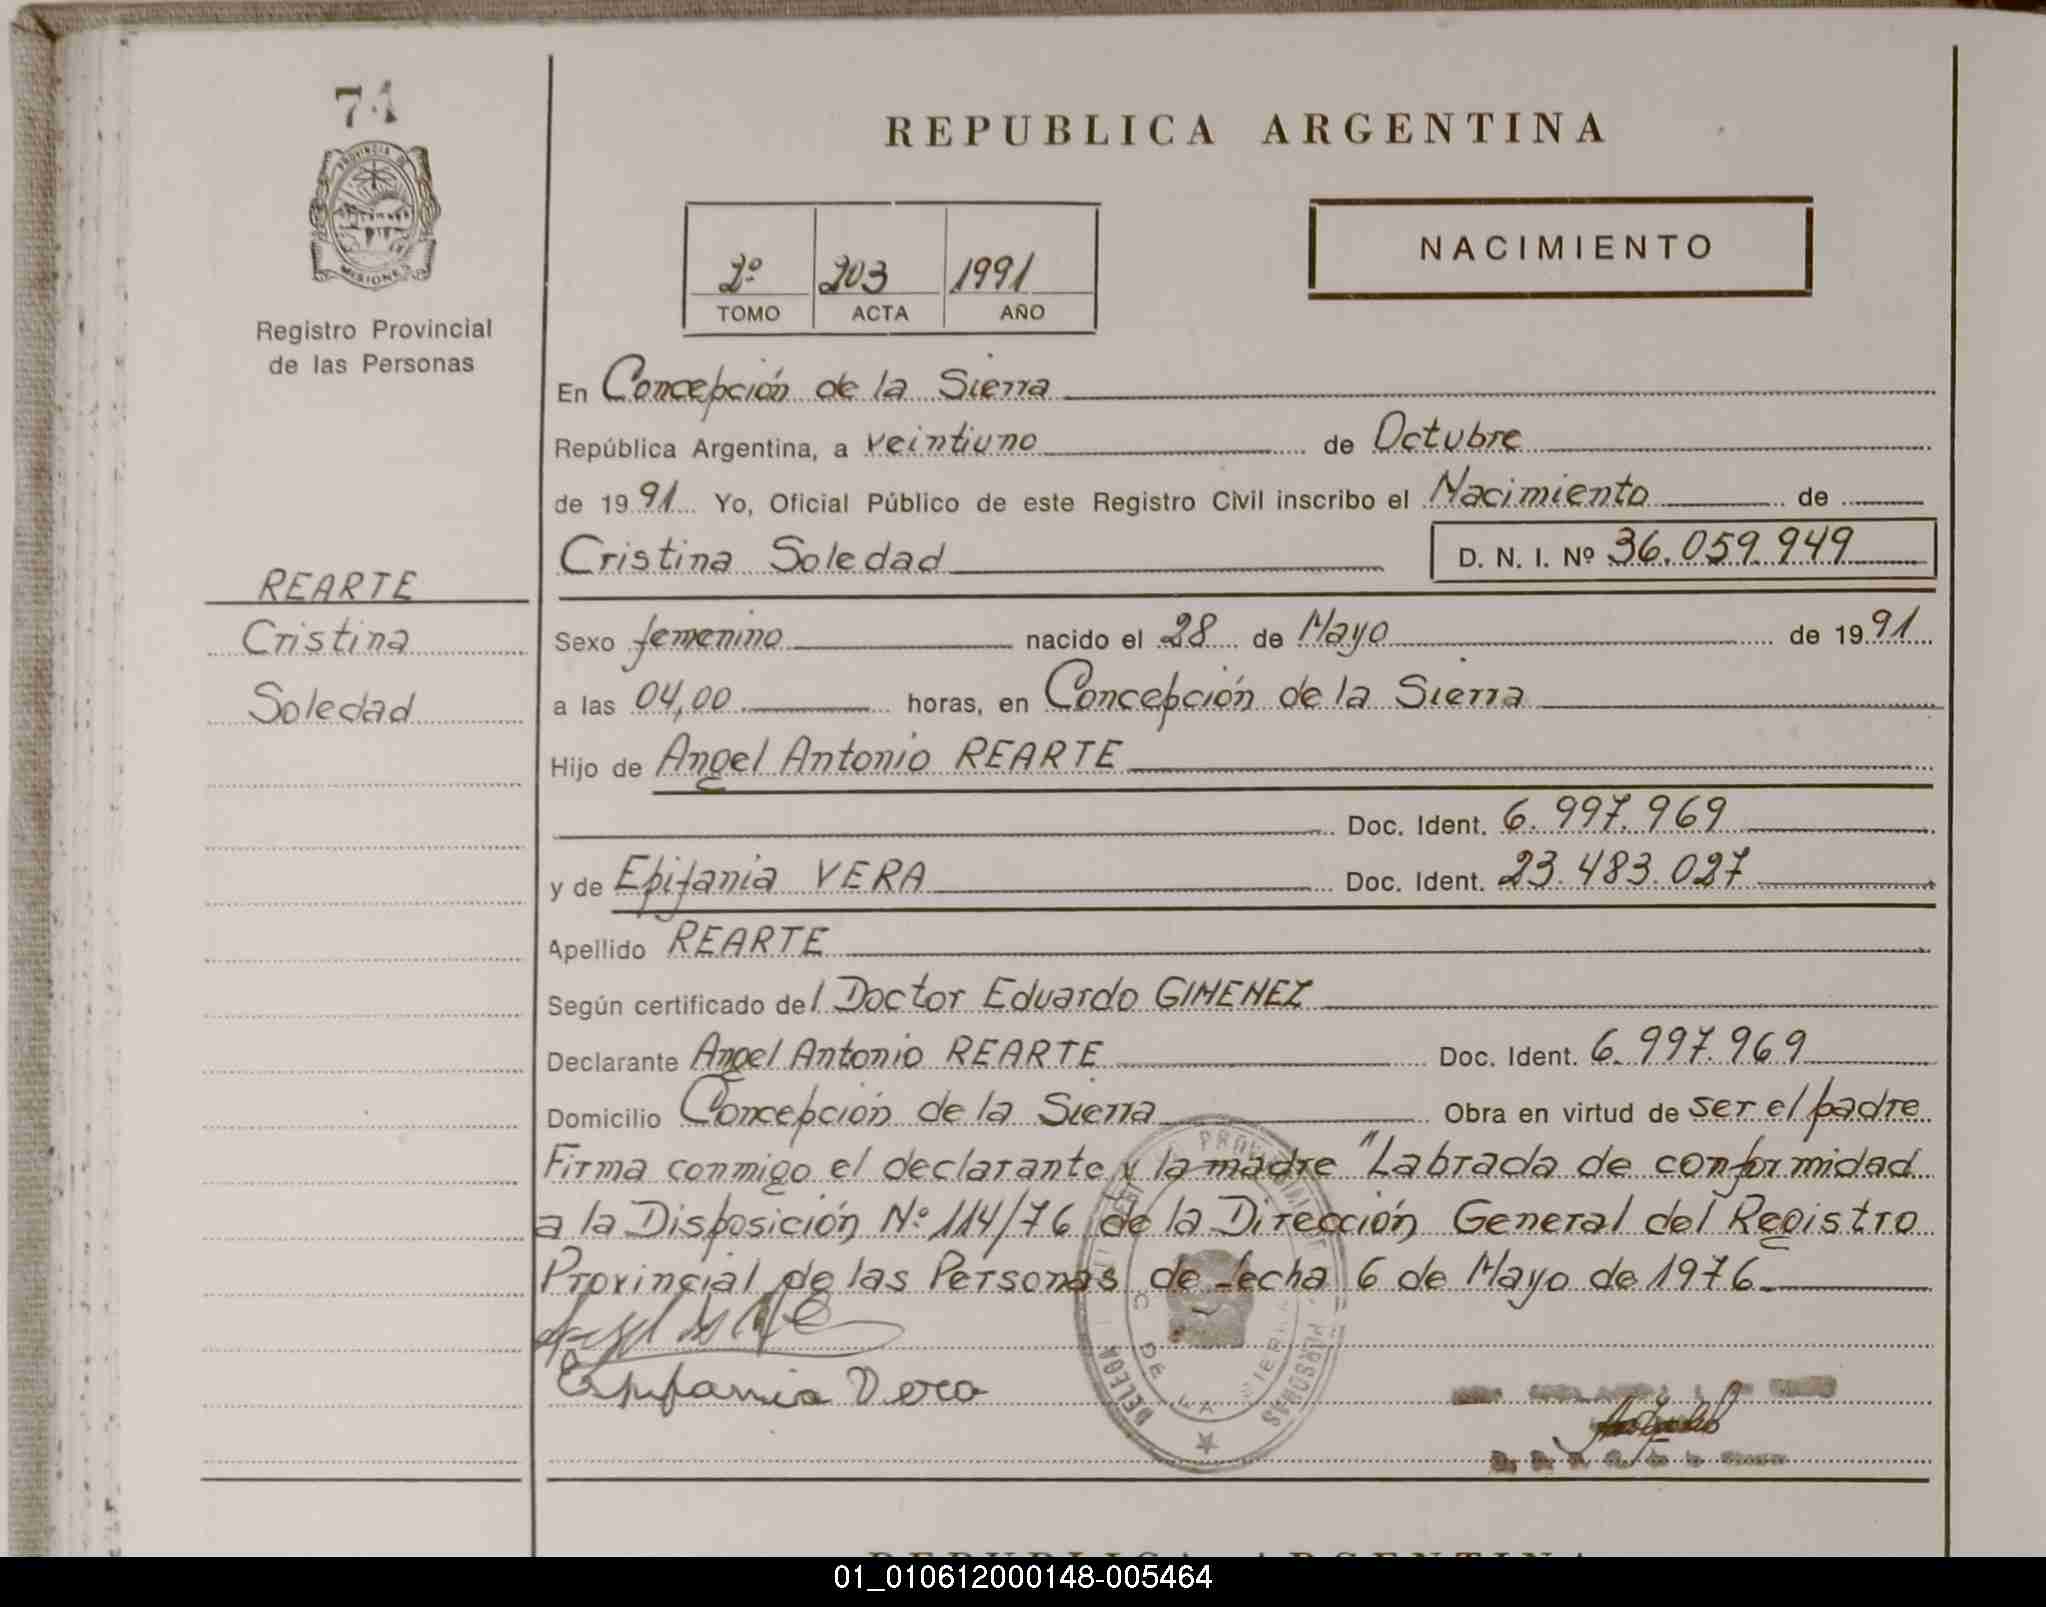 74
PROVINCIA DE
MISIONES
Registro Provincial
de las Personas
REARTE
Cristina
Soledad
REPUBLICA ARGENTINA
2º 203 1991
TOMO ACTA AÑO
NACIMIENTO
En Concepción de la Sierra
República Argentina, a veintiuno de Octubre
de 1991 Yo, Oficial Público de este Registro Civil inscribo el Nacimiento de
Cristina Soledad D. N. I. Nº 36.059.949
Sexo femenino nacido el 28 de Mayo de 1991
a las 04,00 horas, en Concepción de la Sierra
Hijo de Angel Antonio REARTE
Doc. Ident. 6.997.969
y de Epifania VERA Doc. Ident. 23.483.027
Apellido REARTE
Según certificado del Doctor Eduardo GIMENEZ
Declarante Angel Antonio REARTE Doc. Ident. 6.997.969
Domicilio Concepción de la Sierra Obra en virtud de ser el padre
Firma conmigo el declarante y la madre "Labrada de conformidad
a la Disposición Nº 114/76 de la Dirección General del Registro
Provincial de las Personas de fecha 6 de Mayo de 1976.
Epifania Vera
REPUBLICA ARGENTINA
01_010612000148-005464